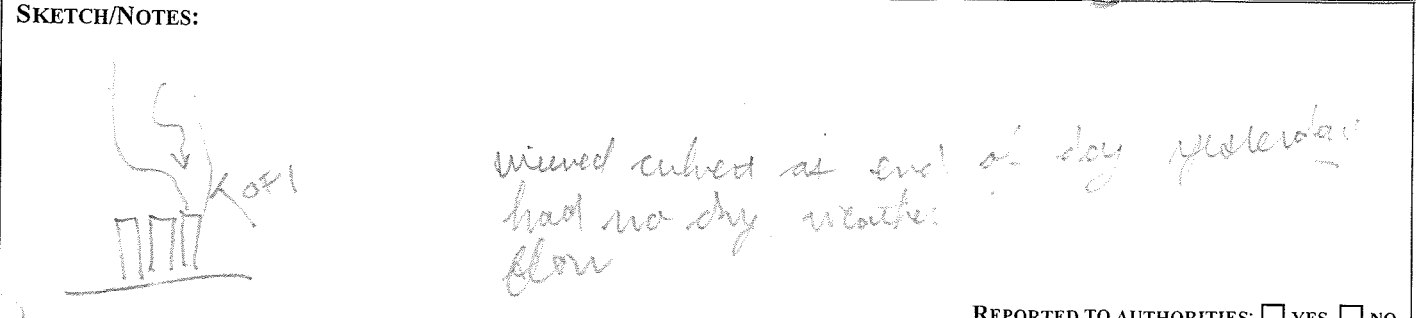 SKETCH/NOTES:
OF1
viewed culvert at end of day yesterday
had no dry weather
flow
REPORTED TO AUTHORITIES: ☐ YES ☐ NO